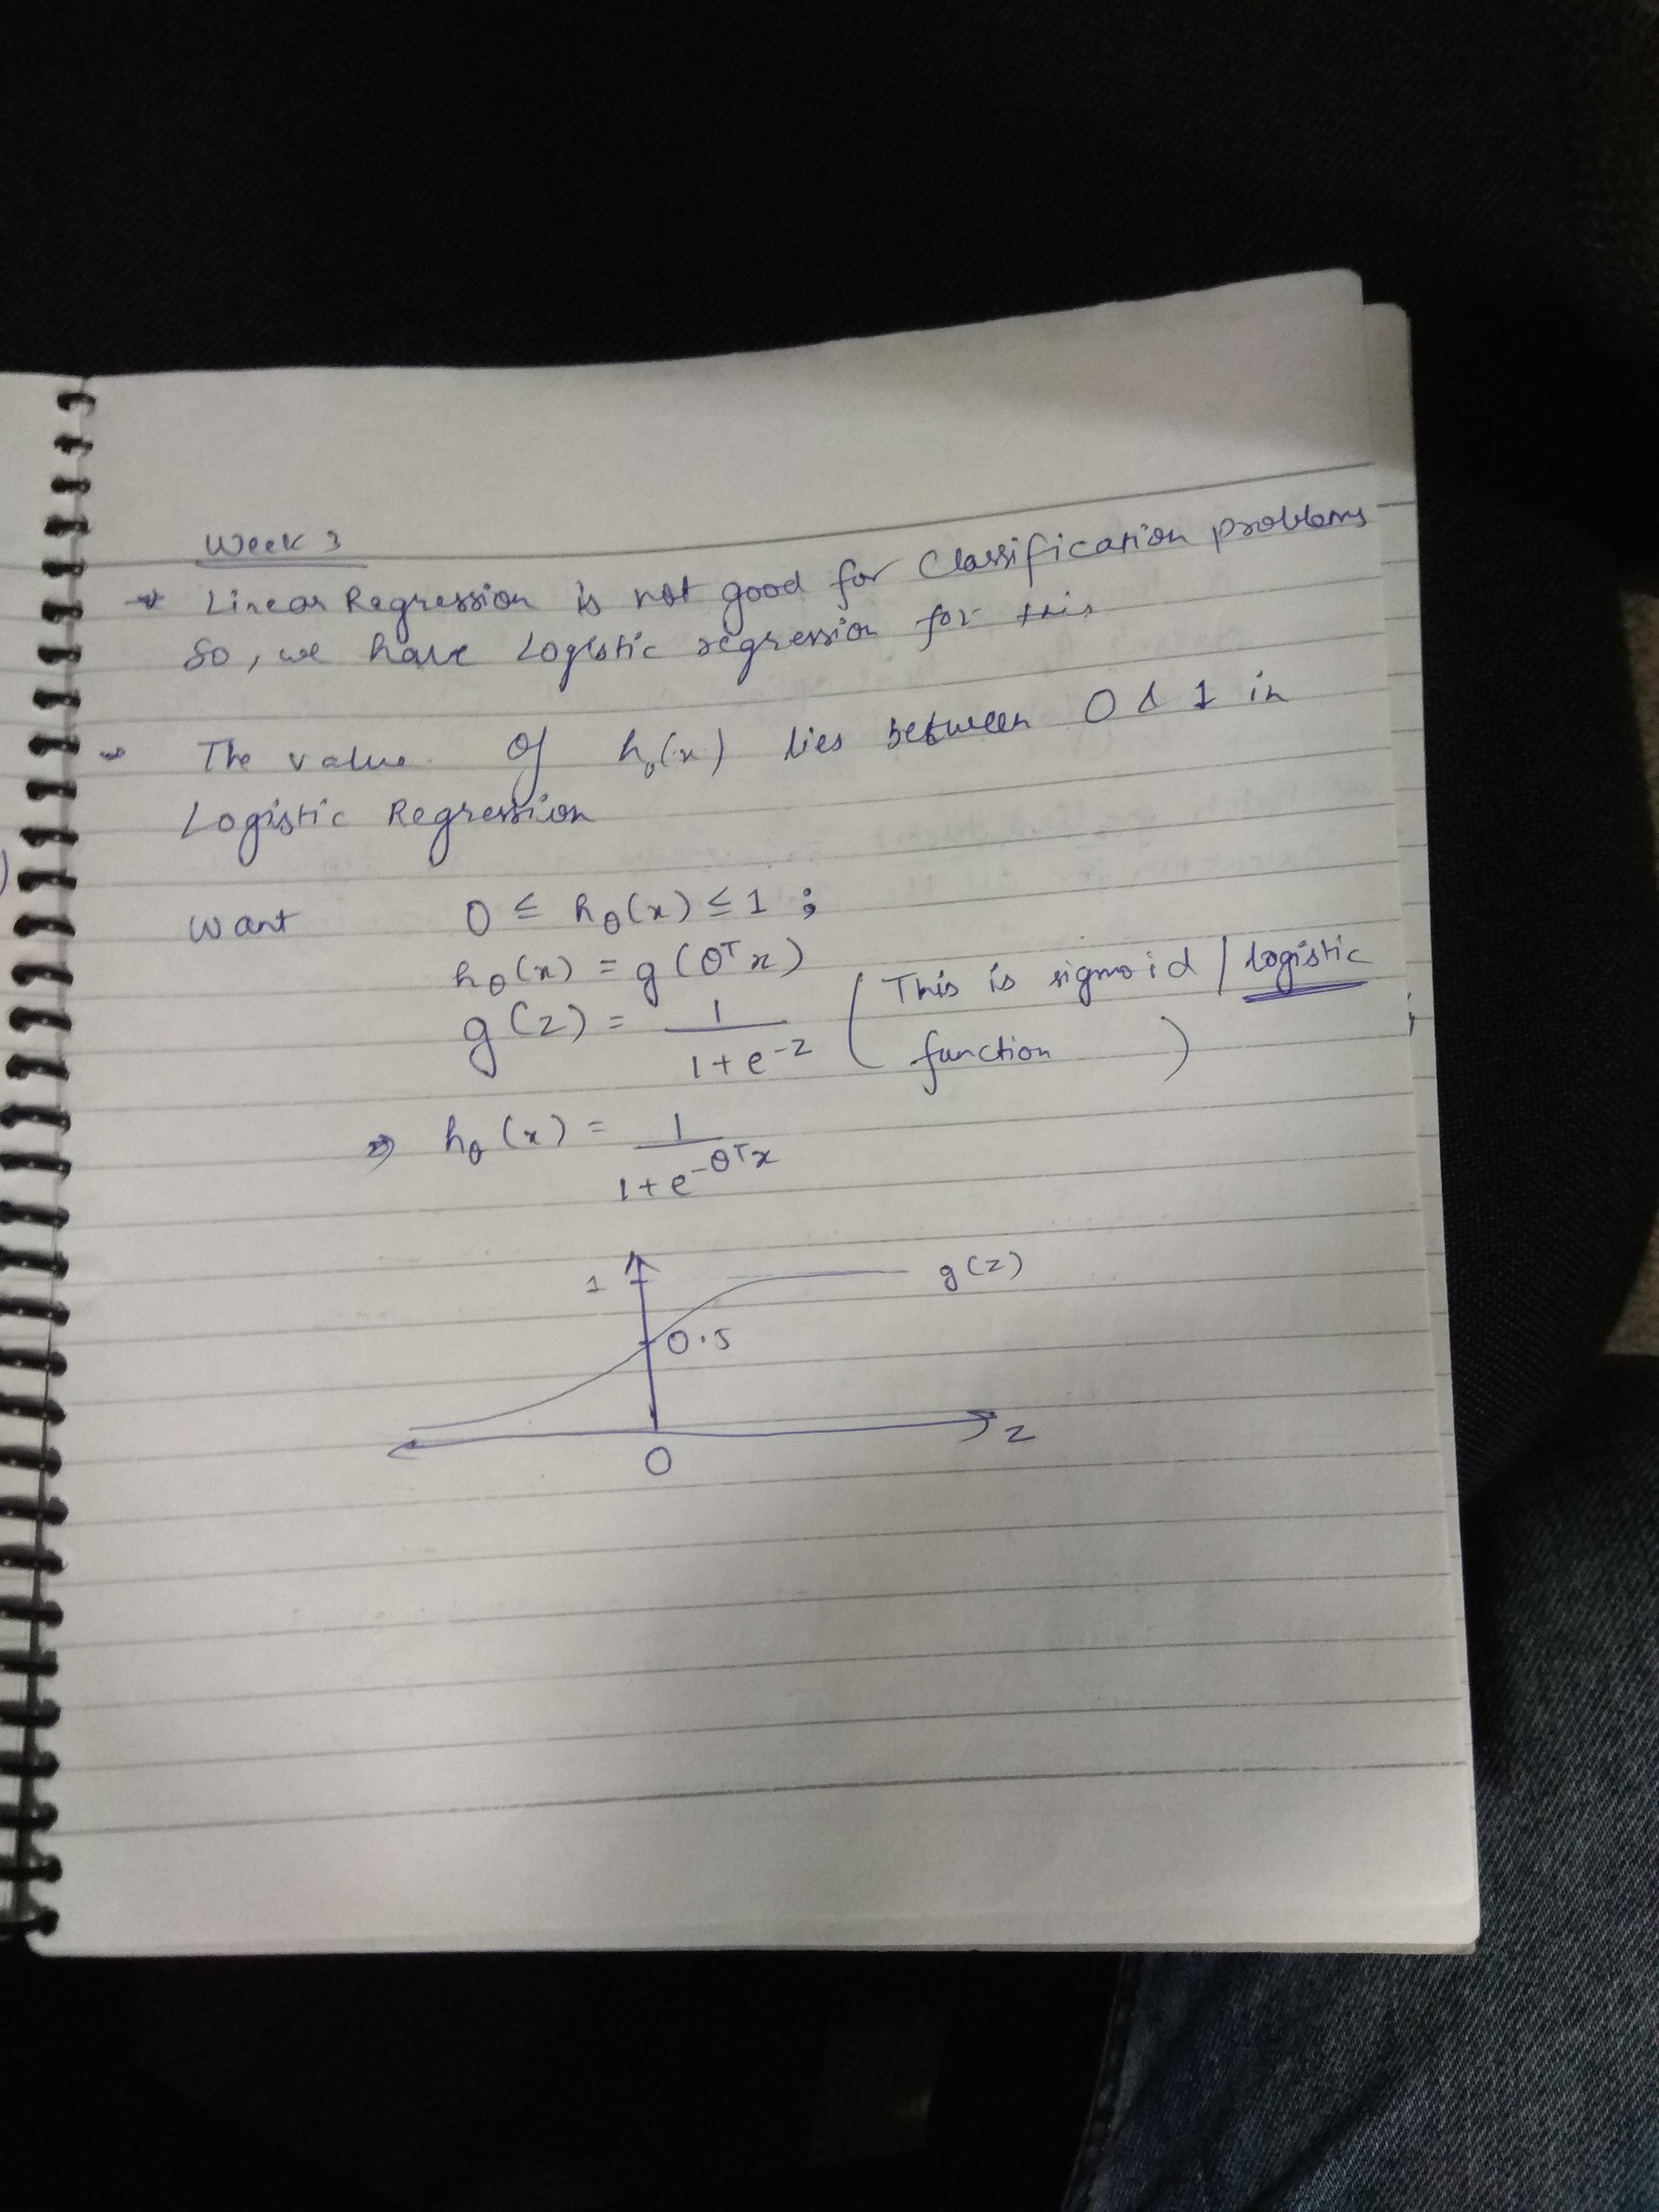 Week 3
→ Linear Regression is not good for Classification problems
So, we have Logistic regression for this
→ The value of hθ(x) lies between 0 & 1 in
Logistic Regression
Want 0 ≤ hθ(x) ≤ 1 ;
hθ(x) = g(θᵀx)
g(z) = 1 / (1 + e^-z) (This is sigmoid / logistic
function)
⇒ hθ(x) = 1 / (1 + e^-θᵀx)
1 g(z)
0.5
z
0